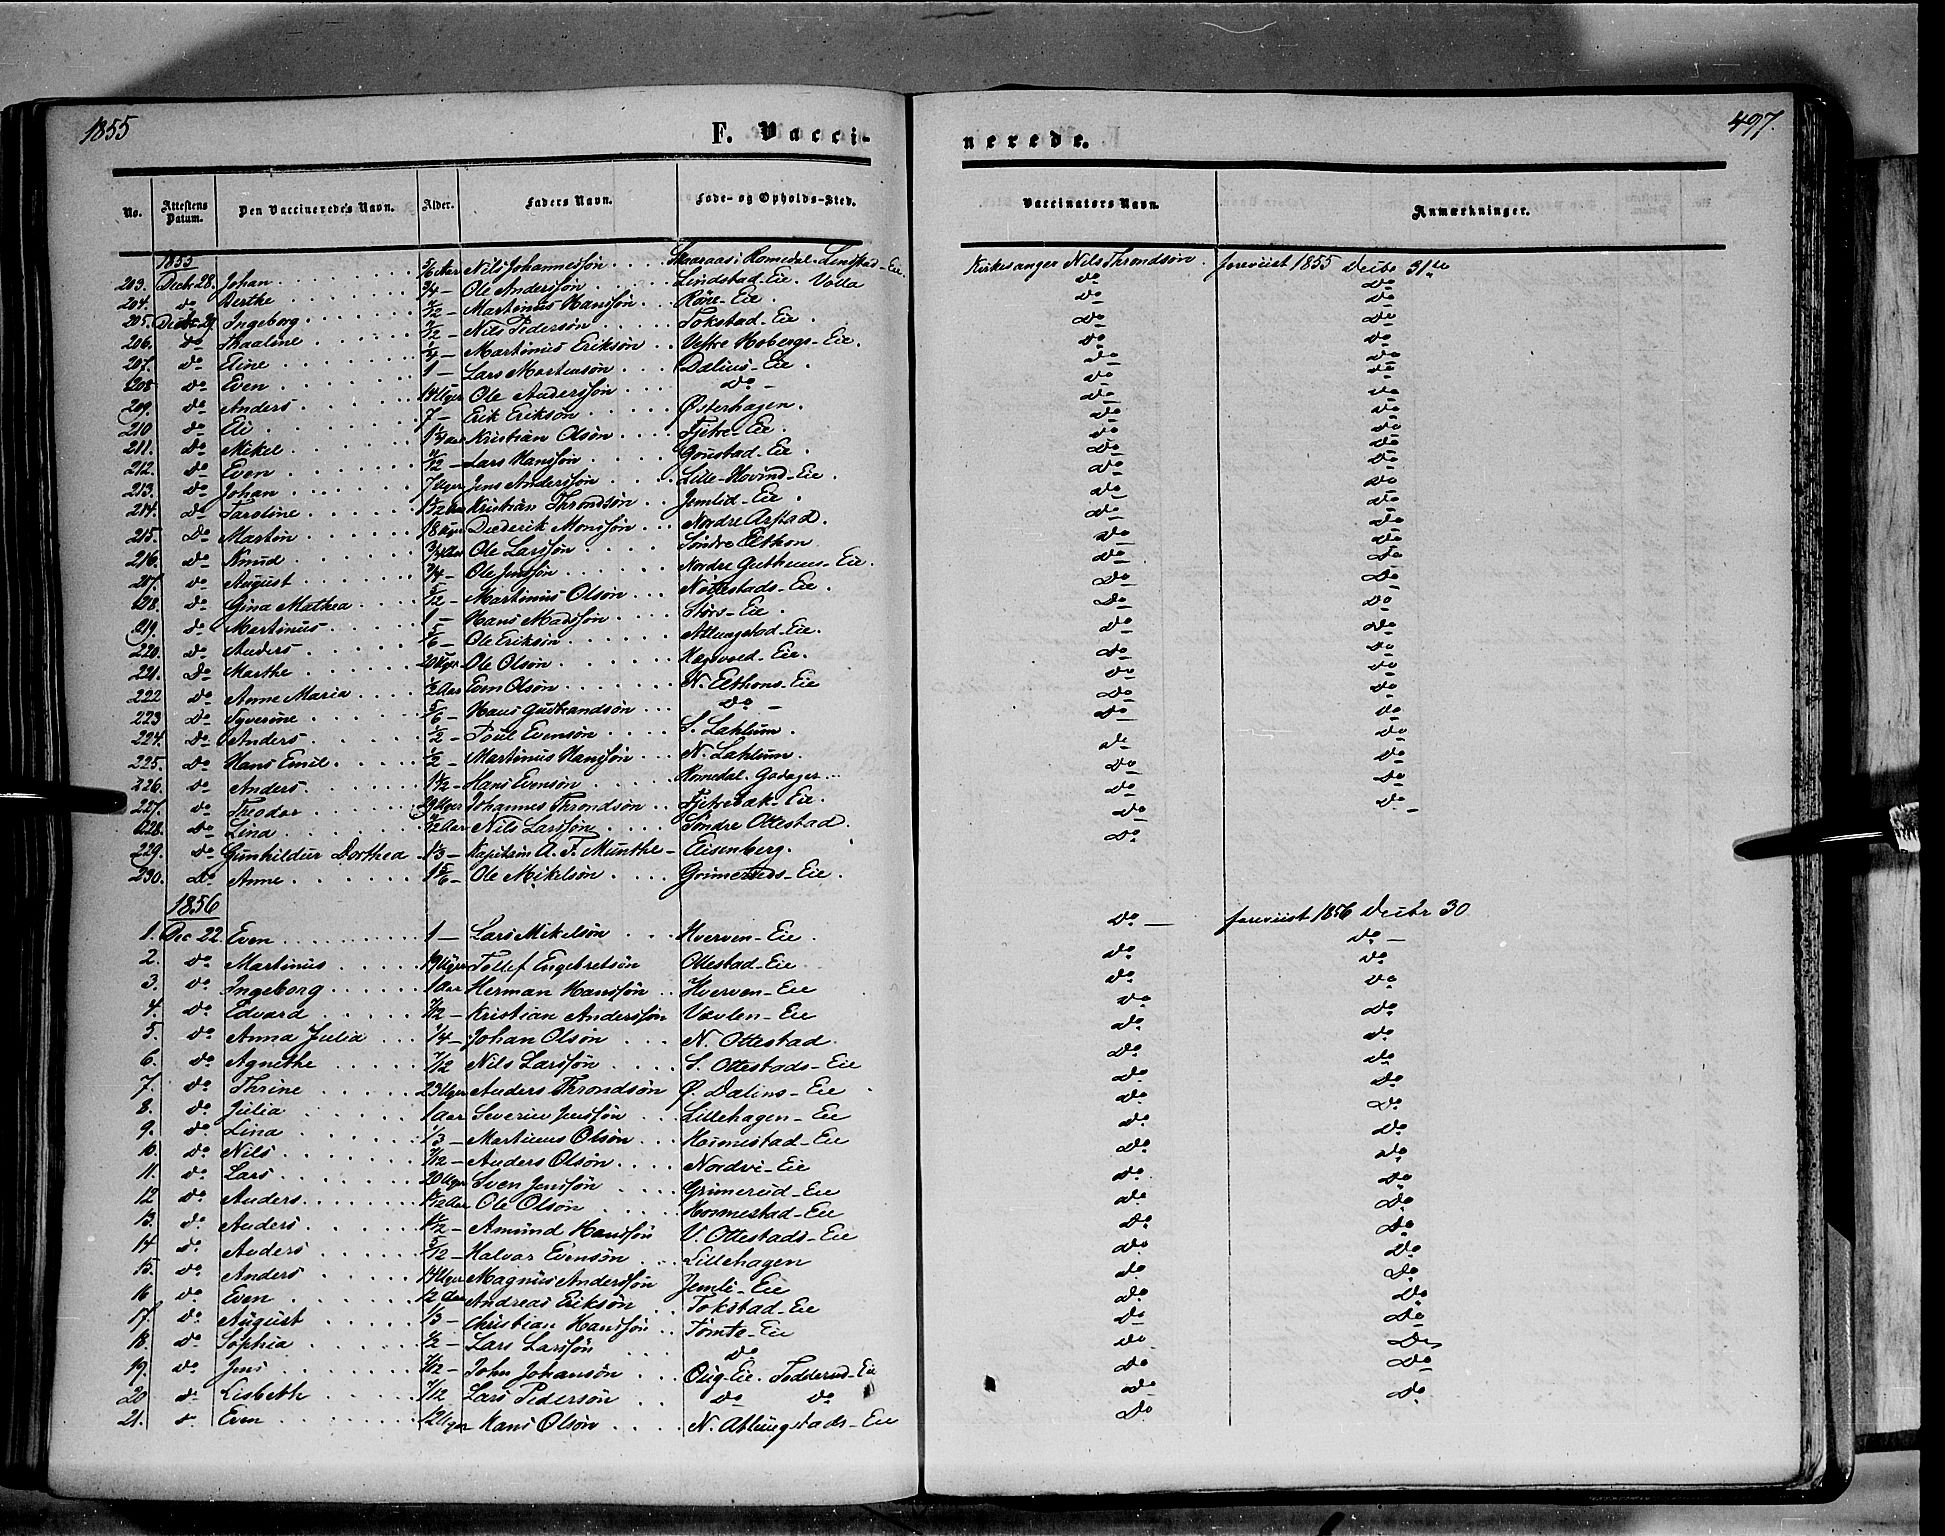 1855
F. Vacci-
nerede.
497.
No. Attestens Datum. Den Vaccineredes Navn. Alder. Faders Navn. Føde- og Opholds-Sted. Vaccinators Navn. Anmærkninger.
1855
203. Decbr 28. Johan 5/6 Aar Nils Johannessøn Skaaraas i Romedal. Lindstad-Eie Kirkesanger Nils Throndsøn. foreviist 1855 Decbr 31te
204. do Berthe 3/4 - Ole Anderssøn Lindstad-Eie. Volla do do
205. Decbr 29 Ingeborg Martinus Hanssøn Røne-Eie. do do
206. do Nils Pedersøn Tokstad-Eie. do do
207. do Eline 1/4 - Martinus Eriksøn Vestre Hobergs-Eie. do do
208 do Even 1 - Lars Mortensøn Dalius-Eie. do do
209. do Anders 14 Uger Ole Anderssøn do do do
210 do Eli 7 - Erik Eriksøn Østerhagen. do do
211. do Mikel Kristian Olsøn Fjetre-Eie. do do
212. do Even Lars Hanssøn Gonstad-Eie. do do
213. do Johan 7 Uger Jens Anderssøn Lille-Hovind-Eie. do do
214. do Karoline Kristian Throndsøn Jemlid-Eie. do do
215. do Martin 18 Uger Diederik Monssøn Nordre Arstad. do do
216. do Knud 3/4 Aar Ole Larssøn Søndre Eithon do do
217. do August 3/4 - Ole Jenssøn Nordre Guthuus-Eie. do do
218. do Gina Mathea 5/12 - Martinus Olsøn Nottestads-Eie. do do
219. do Martinus 1 - Hans Madssøn Størs-Eie. do do
220. do Anders 5/6 - Ole Eriksøn Atlungstad-Eie. do do
221. do Marthe 20 Uger Ole Olsøn Hagevold-Eie. do do
222 do Anne Maria 1/2 Aar Even Olsøn N. Eithons-Eie do do
223 do Syverine 5/6 - Hans Gudbrandsøn do do do
224. do Anders 1/2 - Poul Evensøn S. Lahlum. do do
225. do Hans Emil 1/2 - Martinus Hanssøn N. Lahlum. do do
226. do Anders 1 1/2 - Hans Evensøn Romedal. Godager do do
227. do Theodor 29 Uger Johannes Throndsøn Fjetrebak-Eie. do do
228. do Lina Nils Larssøn Søndre Ottestad. do do
229. do Gunhildur Dorthea 1 1/3 - Kapitain A. F. Munthe - Elisenberg. do
230. do Anne 1 5/6 - Ole Mikelsøn Grimeruds-Eie.
1856
1. Dec 22. Even 1 - Lars Mikelsøn Hverven-Eie. do foreviist 1856 Decbr 30
2. do Martinus 19 Uger Tollef Engebretsøn Ottestad-Eie do do
3. do Ingeborg 1 Aar Herman Hanssøn Hverven-Eie do do
4. do Edvard 7/12 - Kristian Anderssøn Vævlen-Eie do do
5. do Anna Julia 1/4 - Johan Olsøn N. Ottestad. do do
6. do Agnethe 7/12 Nils Larssøn S. Ottestads-Eie do do
7. do Thrine 23 Uger Anders Throndsøn Ø. Dalins-Eie do do
8. do Julia 1 Aar Severin Jenssøn Lillehagen-Eie do do
9. do Lina 1/3 - Martinus Olsøn Hornestad-Eie do do
10. do Nils 7/12 - Anders Olsøn Nordvi-Eie do do
11. do Lars 20 Uger Sven Jenssøn Grimerud-Eie do do
12 do Anders Ole Olsøn Hornestad-Eie do do
13. do Anders Amund Hanssøn V. Ottestads-Eie do do
14 do Anders 5/12 - Halvor Evensøn Lillehagen do do
15. do Anders 14 Uger Magnus Anderssøn Jemli-Eie do do
16 do Even 1/2 Aar Andreas Eriksøn Tokstad-Eie do do
17. do August 1/3 - Christian Hanssøn Tomte-Eie do do
18. do Sophia 1/2 - Lars Larssøn do do do
19. do Jens 7/12 - John Johansøn Oug-Eie. Fodderud-Eie do do
20 do Lisbeth 7/12 Lars Pedersøn do do do do
21. do Even 12 Uger Hans Olsøn N. Atlungstads-Eie do